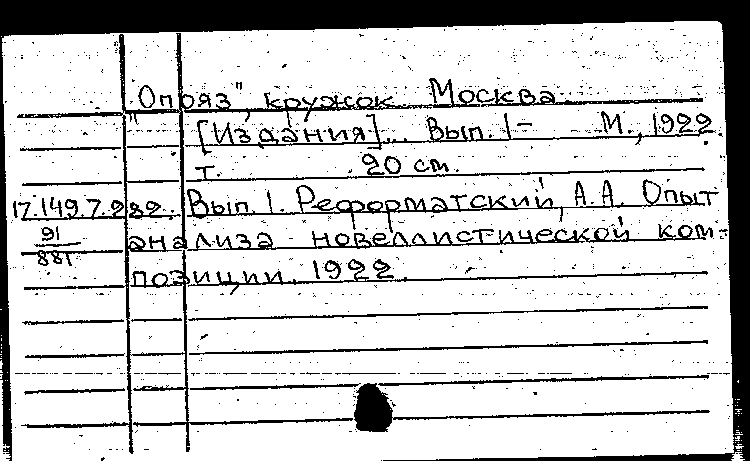 "Опояз", кружок Москва.
[Издания]... Вып. 1- М., 1922
т. 20 см.
17.149.7.282. Вып. 1. Реформатский, А.А. Опыт
91 анализа новеллистической ком-
881 позиции. 1922.